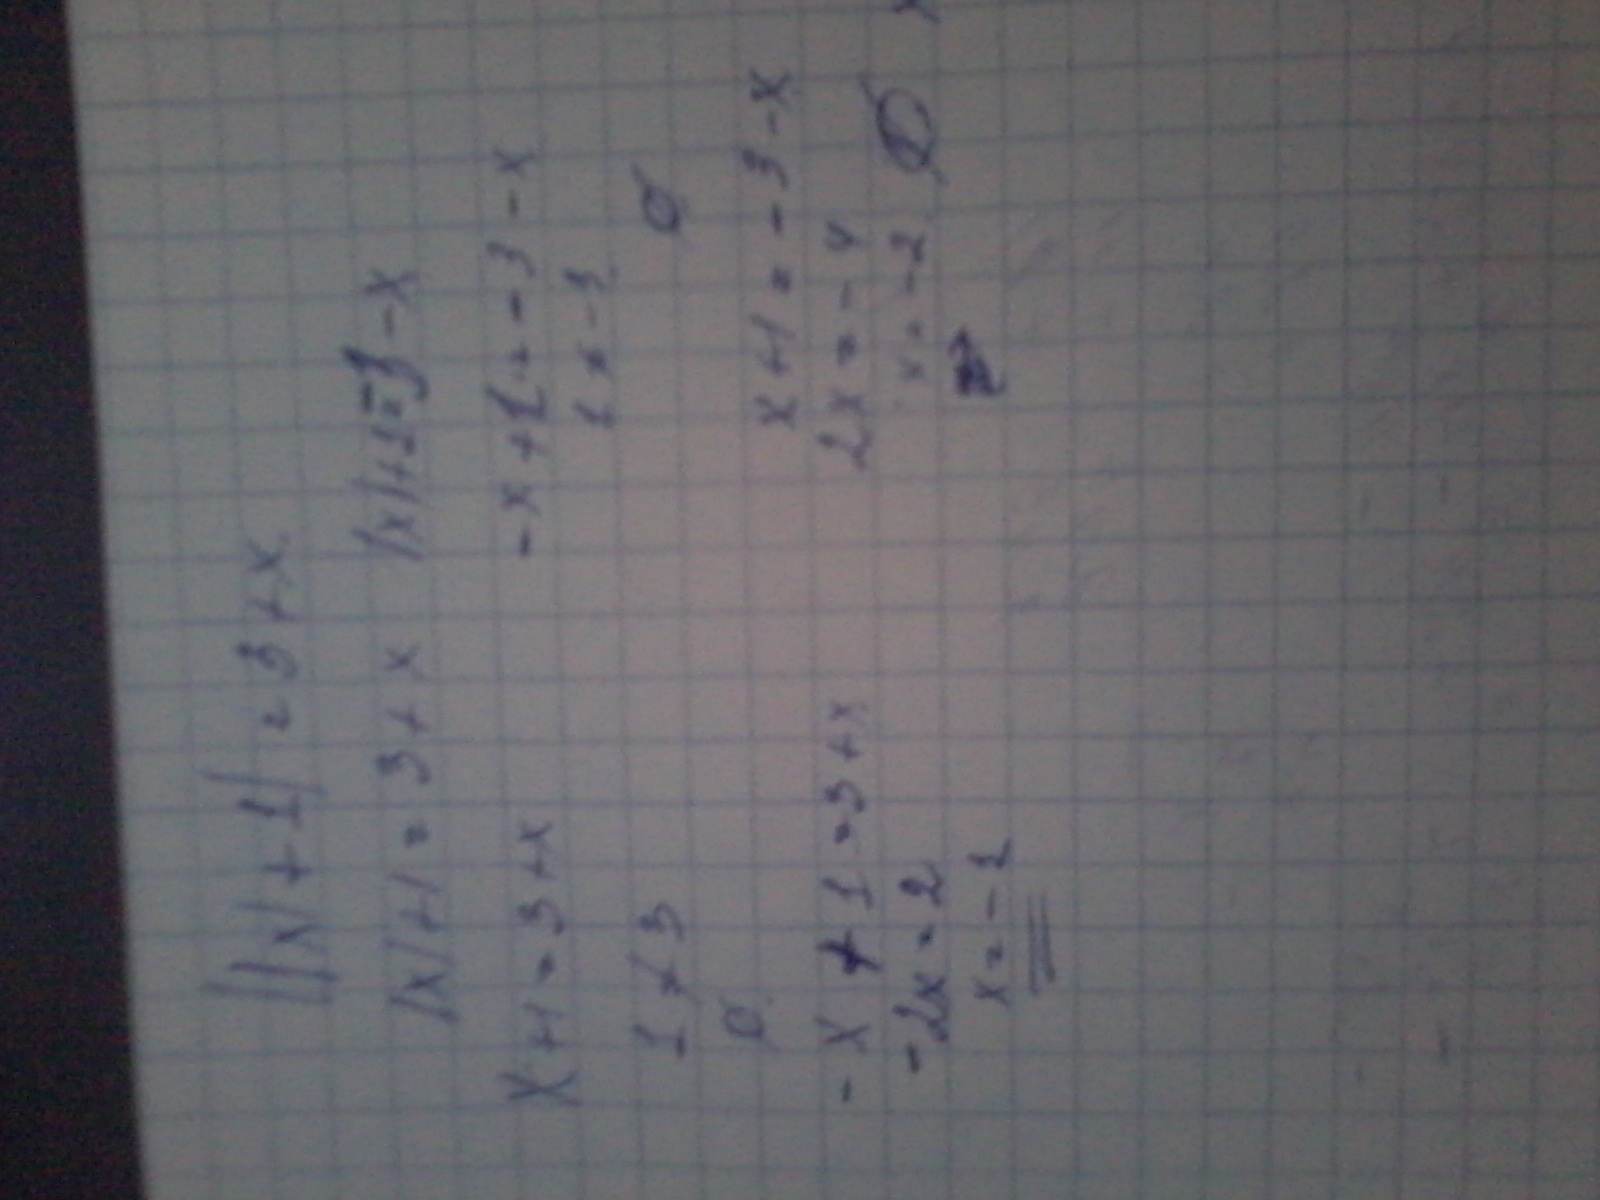 ||x|+1|=3+x
|x|+1=3+x |x|+1=-3-x
x+1=3+x -x+1=-3-x
1≠3 1≠-3
∅ ∅
-x+1=3+x x+1=-3-x
-2x=2 2x=-4
x=-1 x=-2 ∅